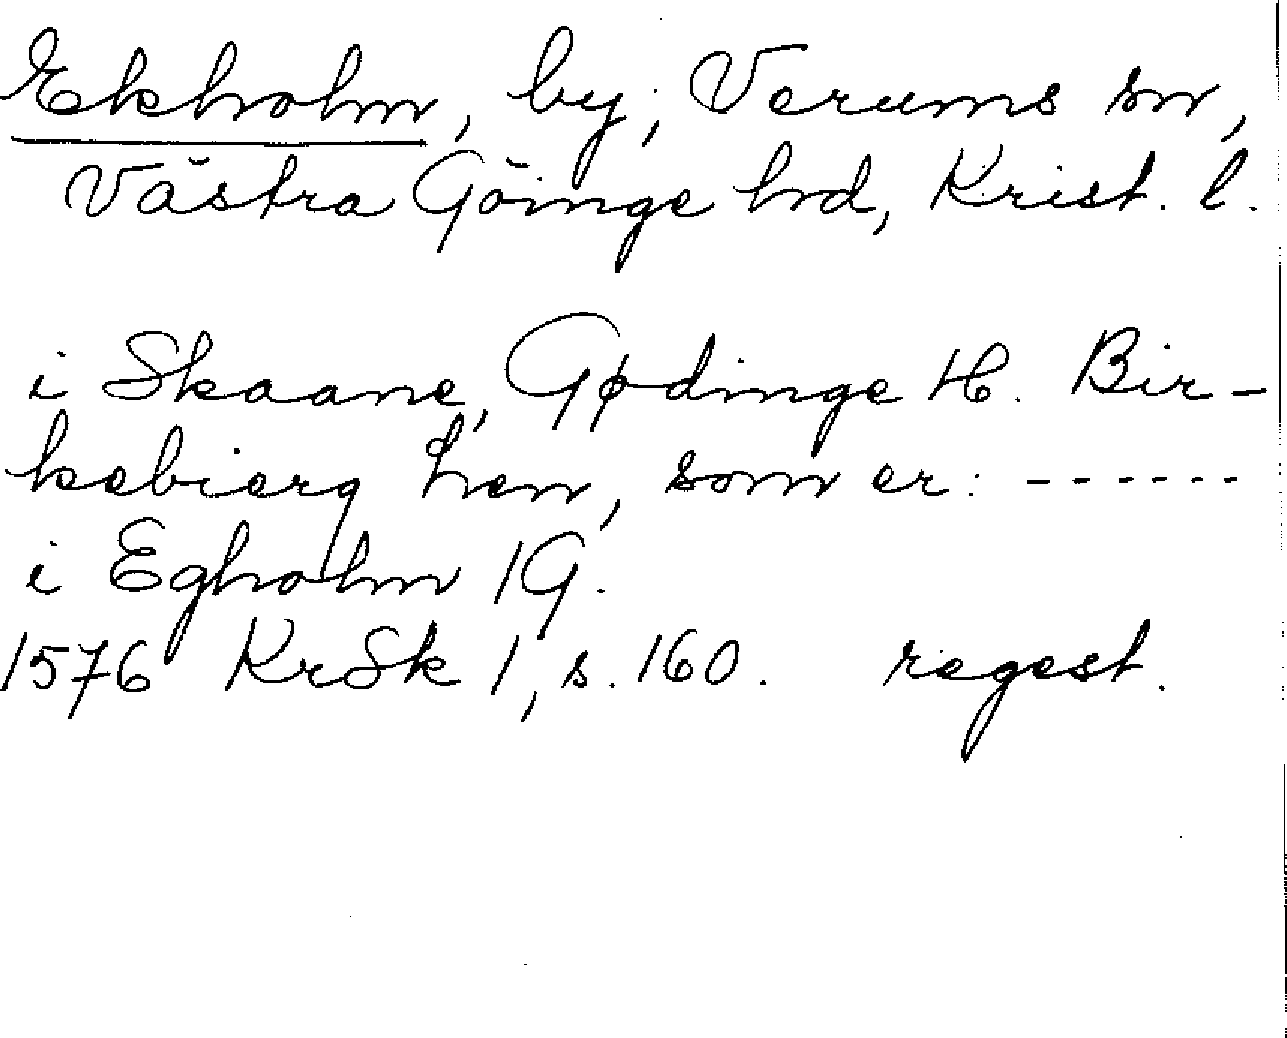 Ekholm, by; Verums sn,
Västra Göinge hrd, Krist. l.
i Skaane, Gødinge H. Bir-
kebierg Len, som er: ------
i Egholm 1G.
1576 KrSk 1, s. 160. regest.